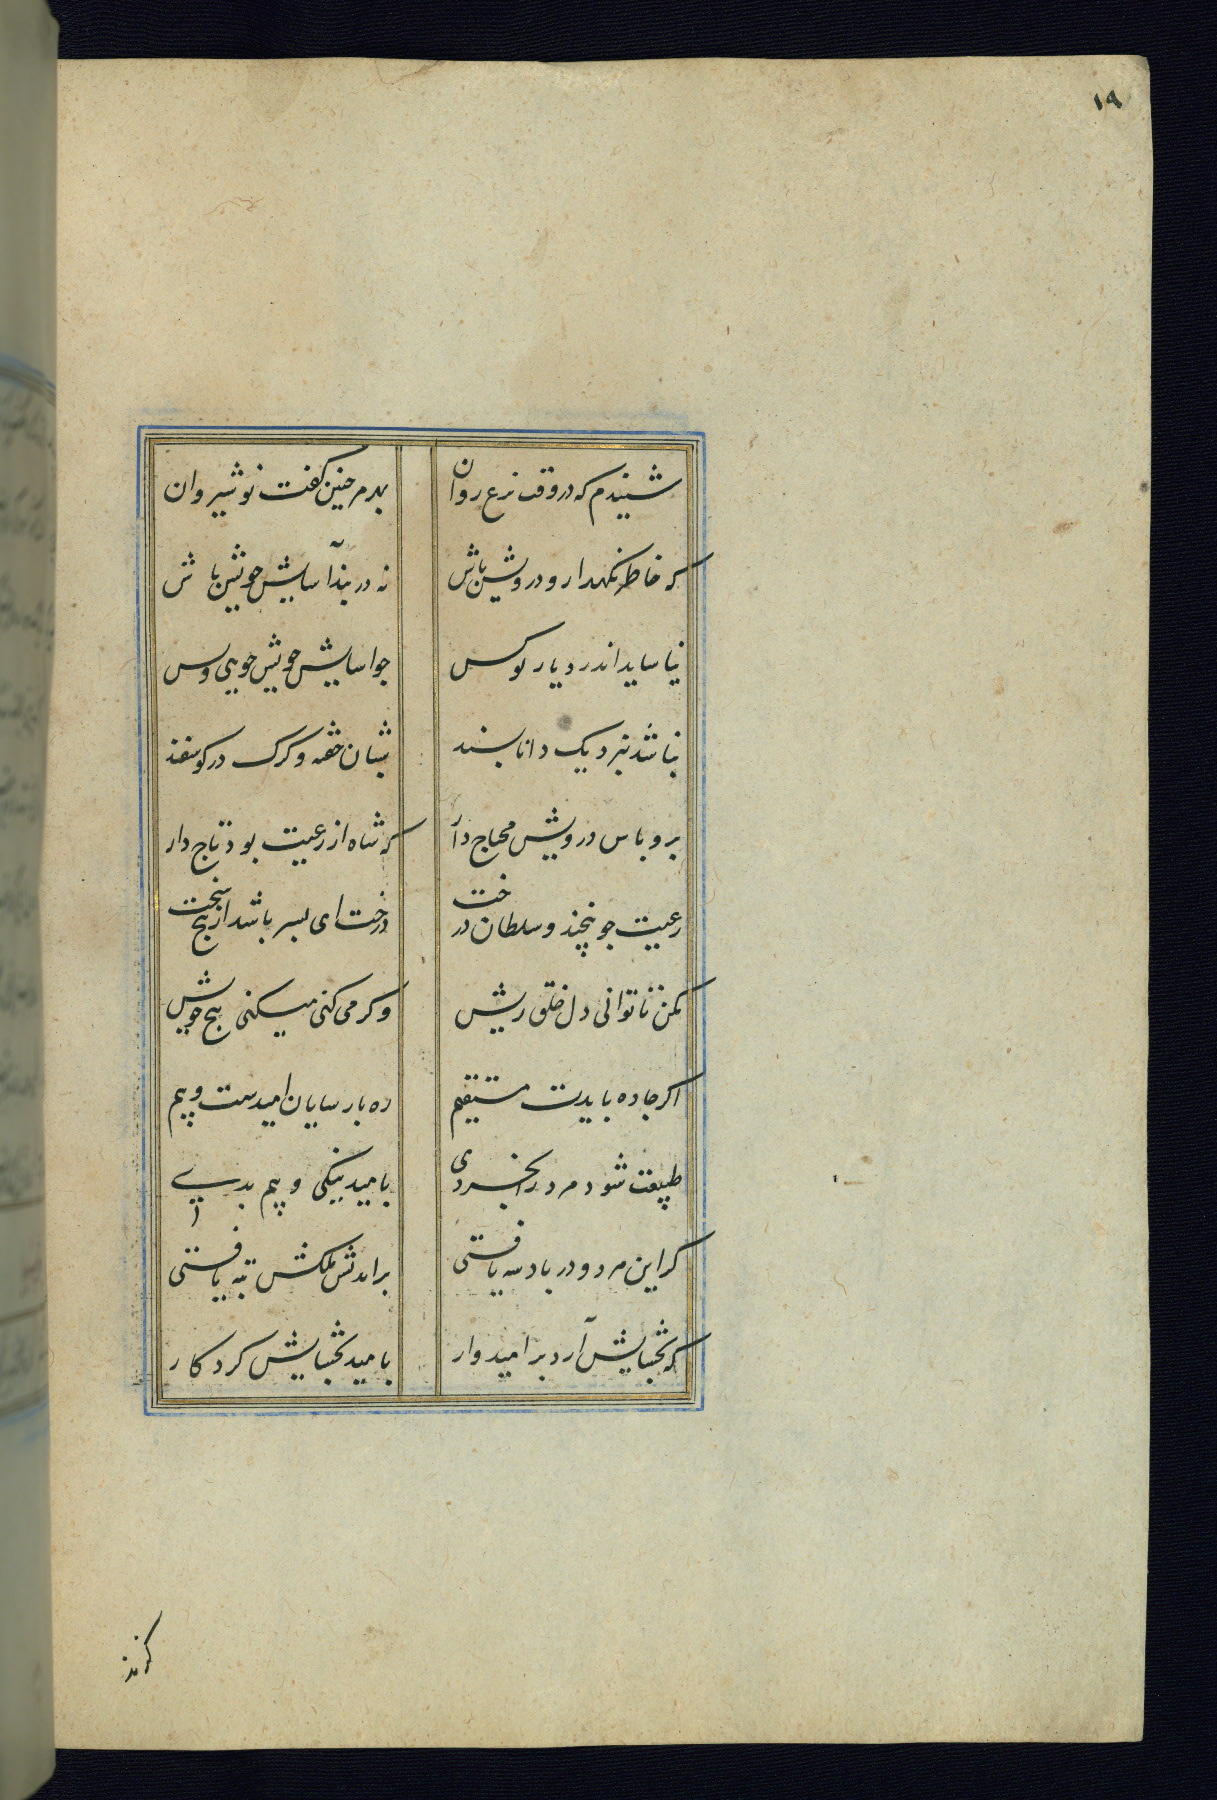 ١٩
شنیدم که در وقت نزع روان بهرمز چنین کفت نوشیروان
که خاطر نکهدار و درویش باش نه در بند آسایش خویش باش
نیاساید اندر دیار تو کس جو اسایش خویش جویی و بس
نباشد بنزدیک دانا بسند شبان خفته و کرک در کوسفند
برو باس درویش محتاج دار که شاه از رعیت بود تاج دار
رعیت جو بیخند و سلطان درخت درخت ای بسر باشد از بیخ سخت
مکن تا توانی دل خلق ریش وکر می کنی میکنی بیخ خویش
اکر جاده بایدت مستقیم ره بارسایان امیدست و بیم
طبیعت شود مرد را بخردی بامید نیکی و بیم بدی
کر این مرد و در بادسه یافتی براندش ملکش تبه یافتی
که بخشایش آرد بر امیدوار بامید بخشایش کردکار
کزند